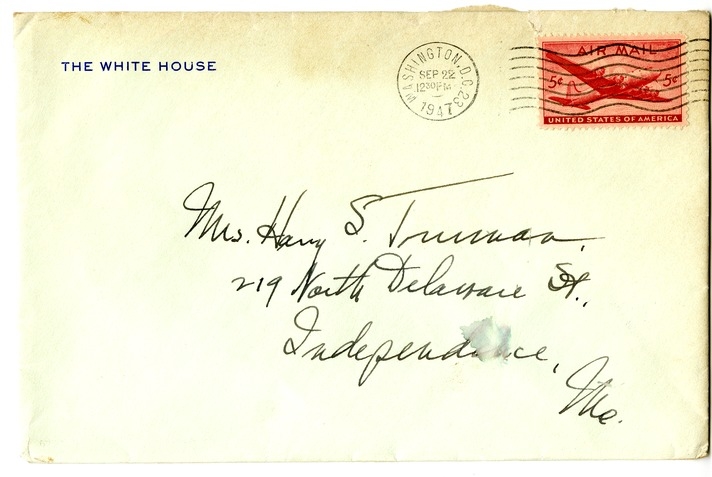 THE WHITE HOUSE
WASHINGTON, D.C. 23
SEP 22
12 30 PM
1947
AIR MAIL
5¢ 5¢
UNITED STATES OF AMERICA
Mrs. Harry S. Truman,
219 North Delaware St.,
Independence,
Mo.